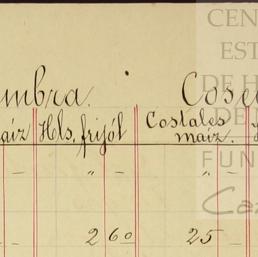 mbra. Cose
aíz Hls. frijól Costales maíz.
" – " –
2 60 25 –
CEN
EST
DE H
DE
FUN
Ca